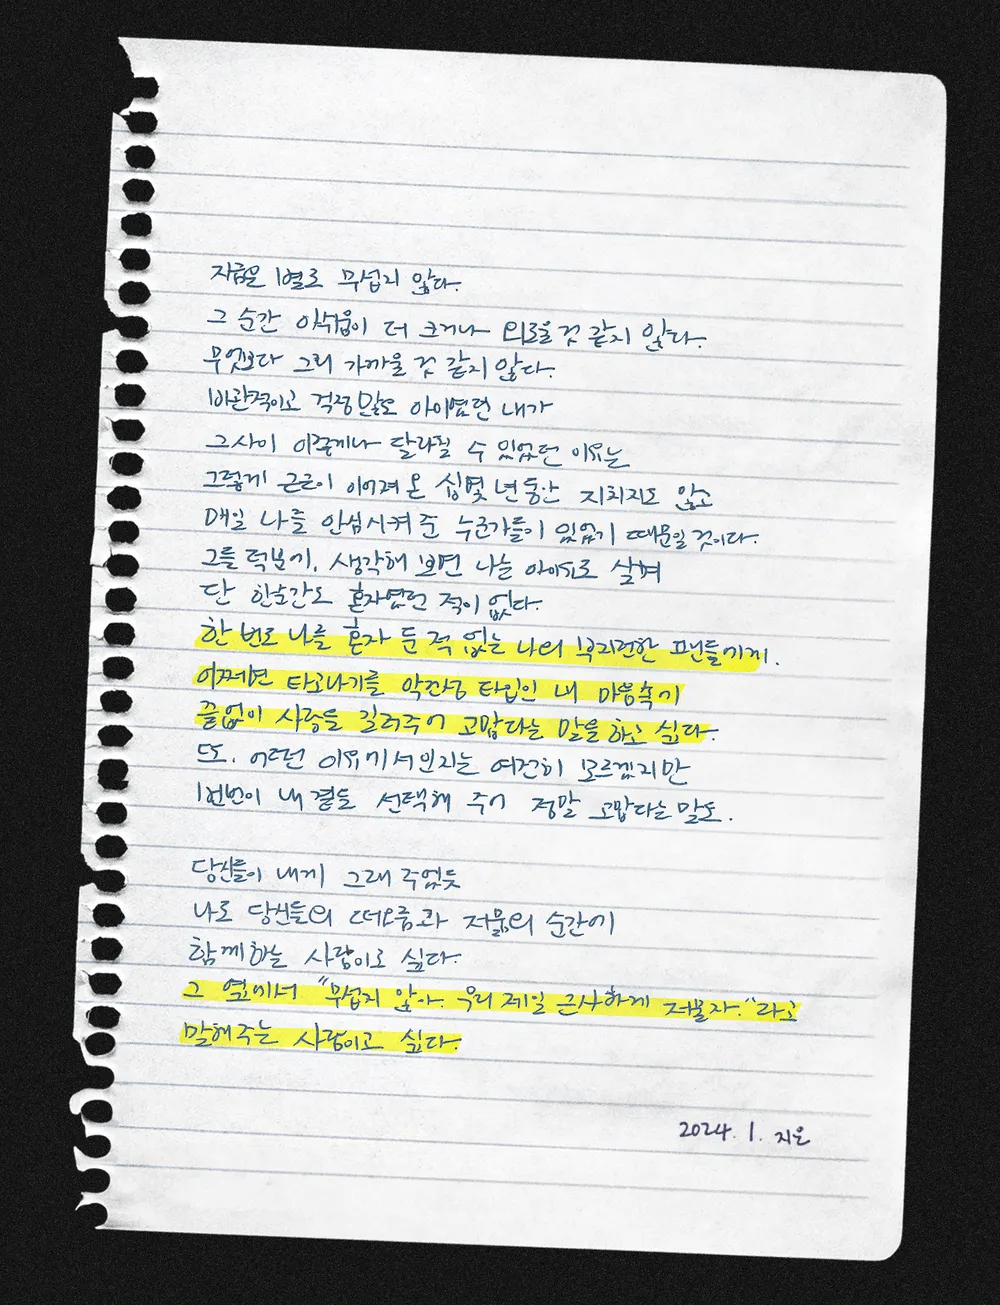 지금은 별로 무섭지 않다.
그 순간 아쉬움이 더 크거나 외로울 것 같지 않다.
무엇보다 그리 가까울 것 같지 않다.
비관적이고 걱정 많은 아이였던 내가
그사이 이렇게나 달라질 수 있었던 이유는
그렇게 근근이 이어져 온 십몇 년 동안 지치지도 않고
매일 나를 안심시켜 준 누군가들이 있었기 때문일 것이다.
그들 덕분에, 생각해 보면 나는 아이유로 살며
단 한순간도 혼자였던 적이 없다.
한 번도 나를 혼자 둔 적 없는 나의 부지런한 팬들에게.
어쩌면 타고나기를 악건성 타입인 내 마음축에
끝없이 사랑을 길러주어 고맙다는 말을 하고 싶다.
또, 어떤 이유에서인지는 여전히 모르겠지만
번번이 내 곁을 선택해 주어 정말 고맙다는 말도.
당신들이 내게 그래 주었듯
나도 당신들의 떠오름과 저묾의 순간에
함께하는 사람이고 싶다.
그 옆에서 "무섭지 않아. 우리 제일 근사하게 저물자."라고
말해주는 사람이고 싶다.
2024. 1. 지은